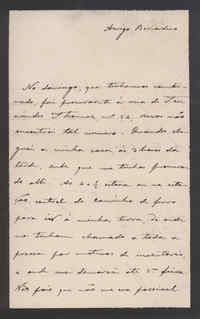 Amigo Bernardino
No domingo, que tinhamos combi-
nado, fui procural-o á rua de Fer-
nandes Thomaz, nº 52, mas não
encontrei tal numero. Quando che-
guei a minha casa ás 3 horas da
tarde, soube que me tinha procura-
do alli. As 4 e ½ estava eu na esta-
ção central do caminho de ferro
para ir á minha terra, de onde
me tinham chamado a toda a
pressa por motivos de inventario,
e onde me demorei até 5ª feira.
pois que não me era possivel